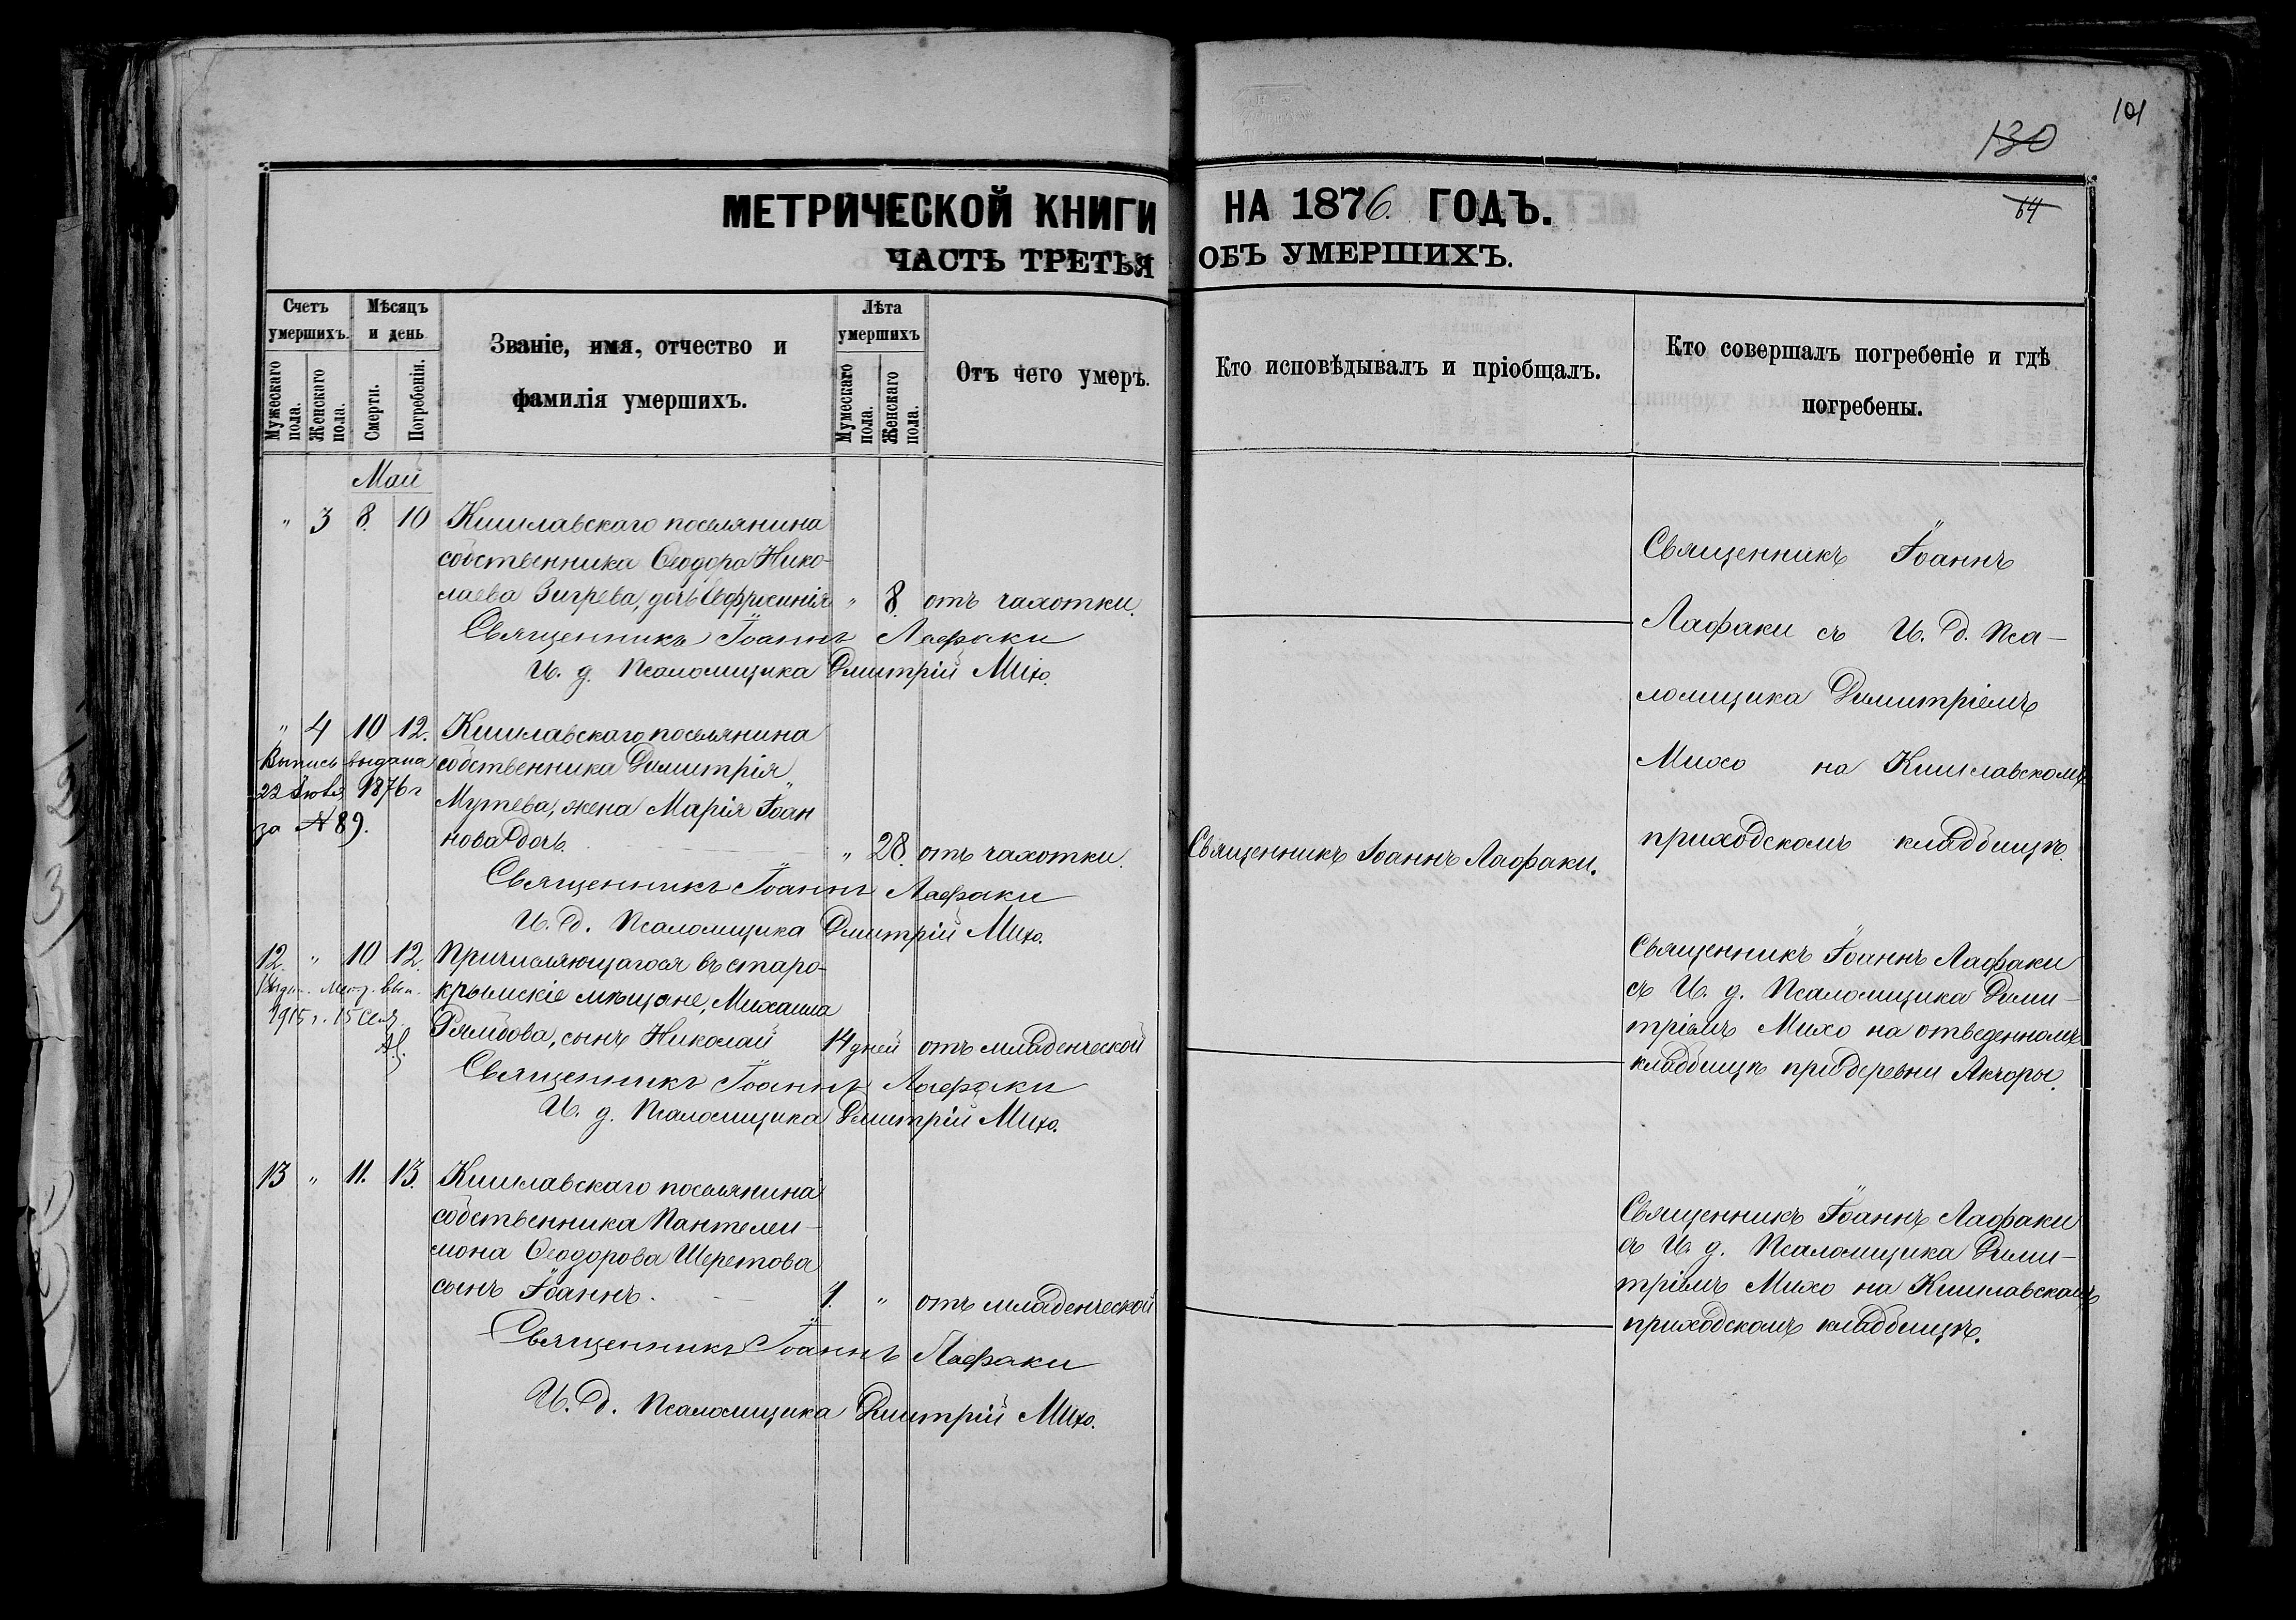 101
130
64
МЕТРИЧЕСКОЙ КНИГИ НА 1876 ГОДЪ.
ЧАСТЬ ТРЕТЬЯ ОБЪ УМЕРШИХЪ.
Счетъ умершихъ.
Мужескаго пола.
Женскаго пола.
Мѣсяцъ и день
Смерти.
Погребенія.
Званіе, имя, отчество и
фамилія умершихъ.
Лѣта умершихъ
Мужескаго пола.
Женскаго пола.
Отъ чего умеръ.
Кто исповѣдывалъ и пріобщалъ.
Кто совершалъ погребеніе и гдѣ
погребены.
Май
" 3 8. 10 Кишлавскаго поселянина
собственника Ѳеодора Нико-
лаева Зигрева, дочь Евфросинія " 8. отъ чахотки.
Священникъ Іоаннъ Лафаки
И. д. Псаломщика Дмитрій Михо.
Священникъ Іоаннъ
Лафаки съ И. д. Пса-
ломщика Димитріемъ
Михо на Кишлавскомъ
приходскомъ кладбищѣ.
" 4 10 12. Кишлавскаго поселянина
Выпись выдана собственника Димитрія
22 1876 г Мутева, жена Марія Іоан
за № 89. нова дочь. " 28. отъ чахотки.
Священникъ Іоаннъ Лафаки.
Священникъ Іоаннъ Лафаки
И. д. Псаломщика Дмитрій Михо.
12. " 10 12. Причисляющагося въ старо-
крымскіе мѣщане, Михаила
1915 г. 15 Сент.
сынъ Николай 14 дней отъ младенческой
Священникъ Іоаннъ Лафаки
И. д. Псаломщика Дмитрій Михо.
Священникъ Іоаннъ Лафаки
съ И. д. Псаломщика Дими-
тріемъ Михо на отведенномъ
кладбищѣ при деревни Акчоры.
13 " 11. 13. Кишлавскаго поселянина
собственника Пантелеи-
мона Ѳеодорова Шеретова
сынъ Іоаннъ. 1. " отъ младенческой
Священникъ Іоаннъ Лафаки
И. д. Псаломщика Дмитрій Михо.
Священникъ Іоаннъ Лафаки
съ И. д. Псаломщика Дими-
тріемъ Михо на Кишлавскомъ
приходскомъ кладбищѣ.